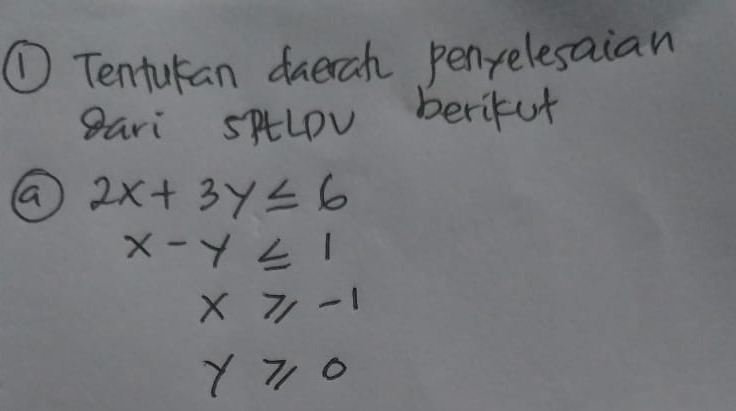 ① Tentukan daerah penyelesaian
dari SPtLDV berikut
ⓐ 2x + 3y ≤ 6
x - y ≤ 1
x ≥ -1
y ≥ 0